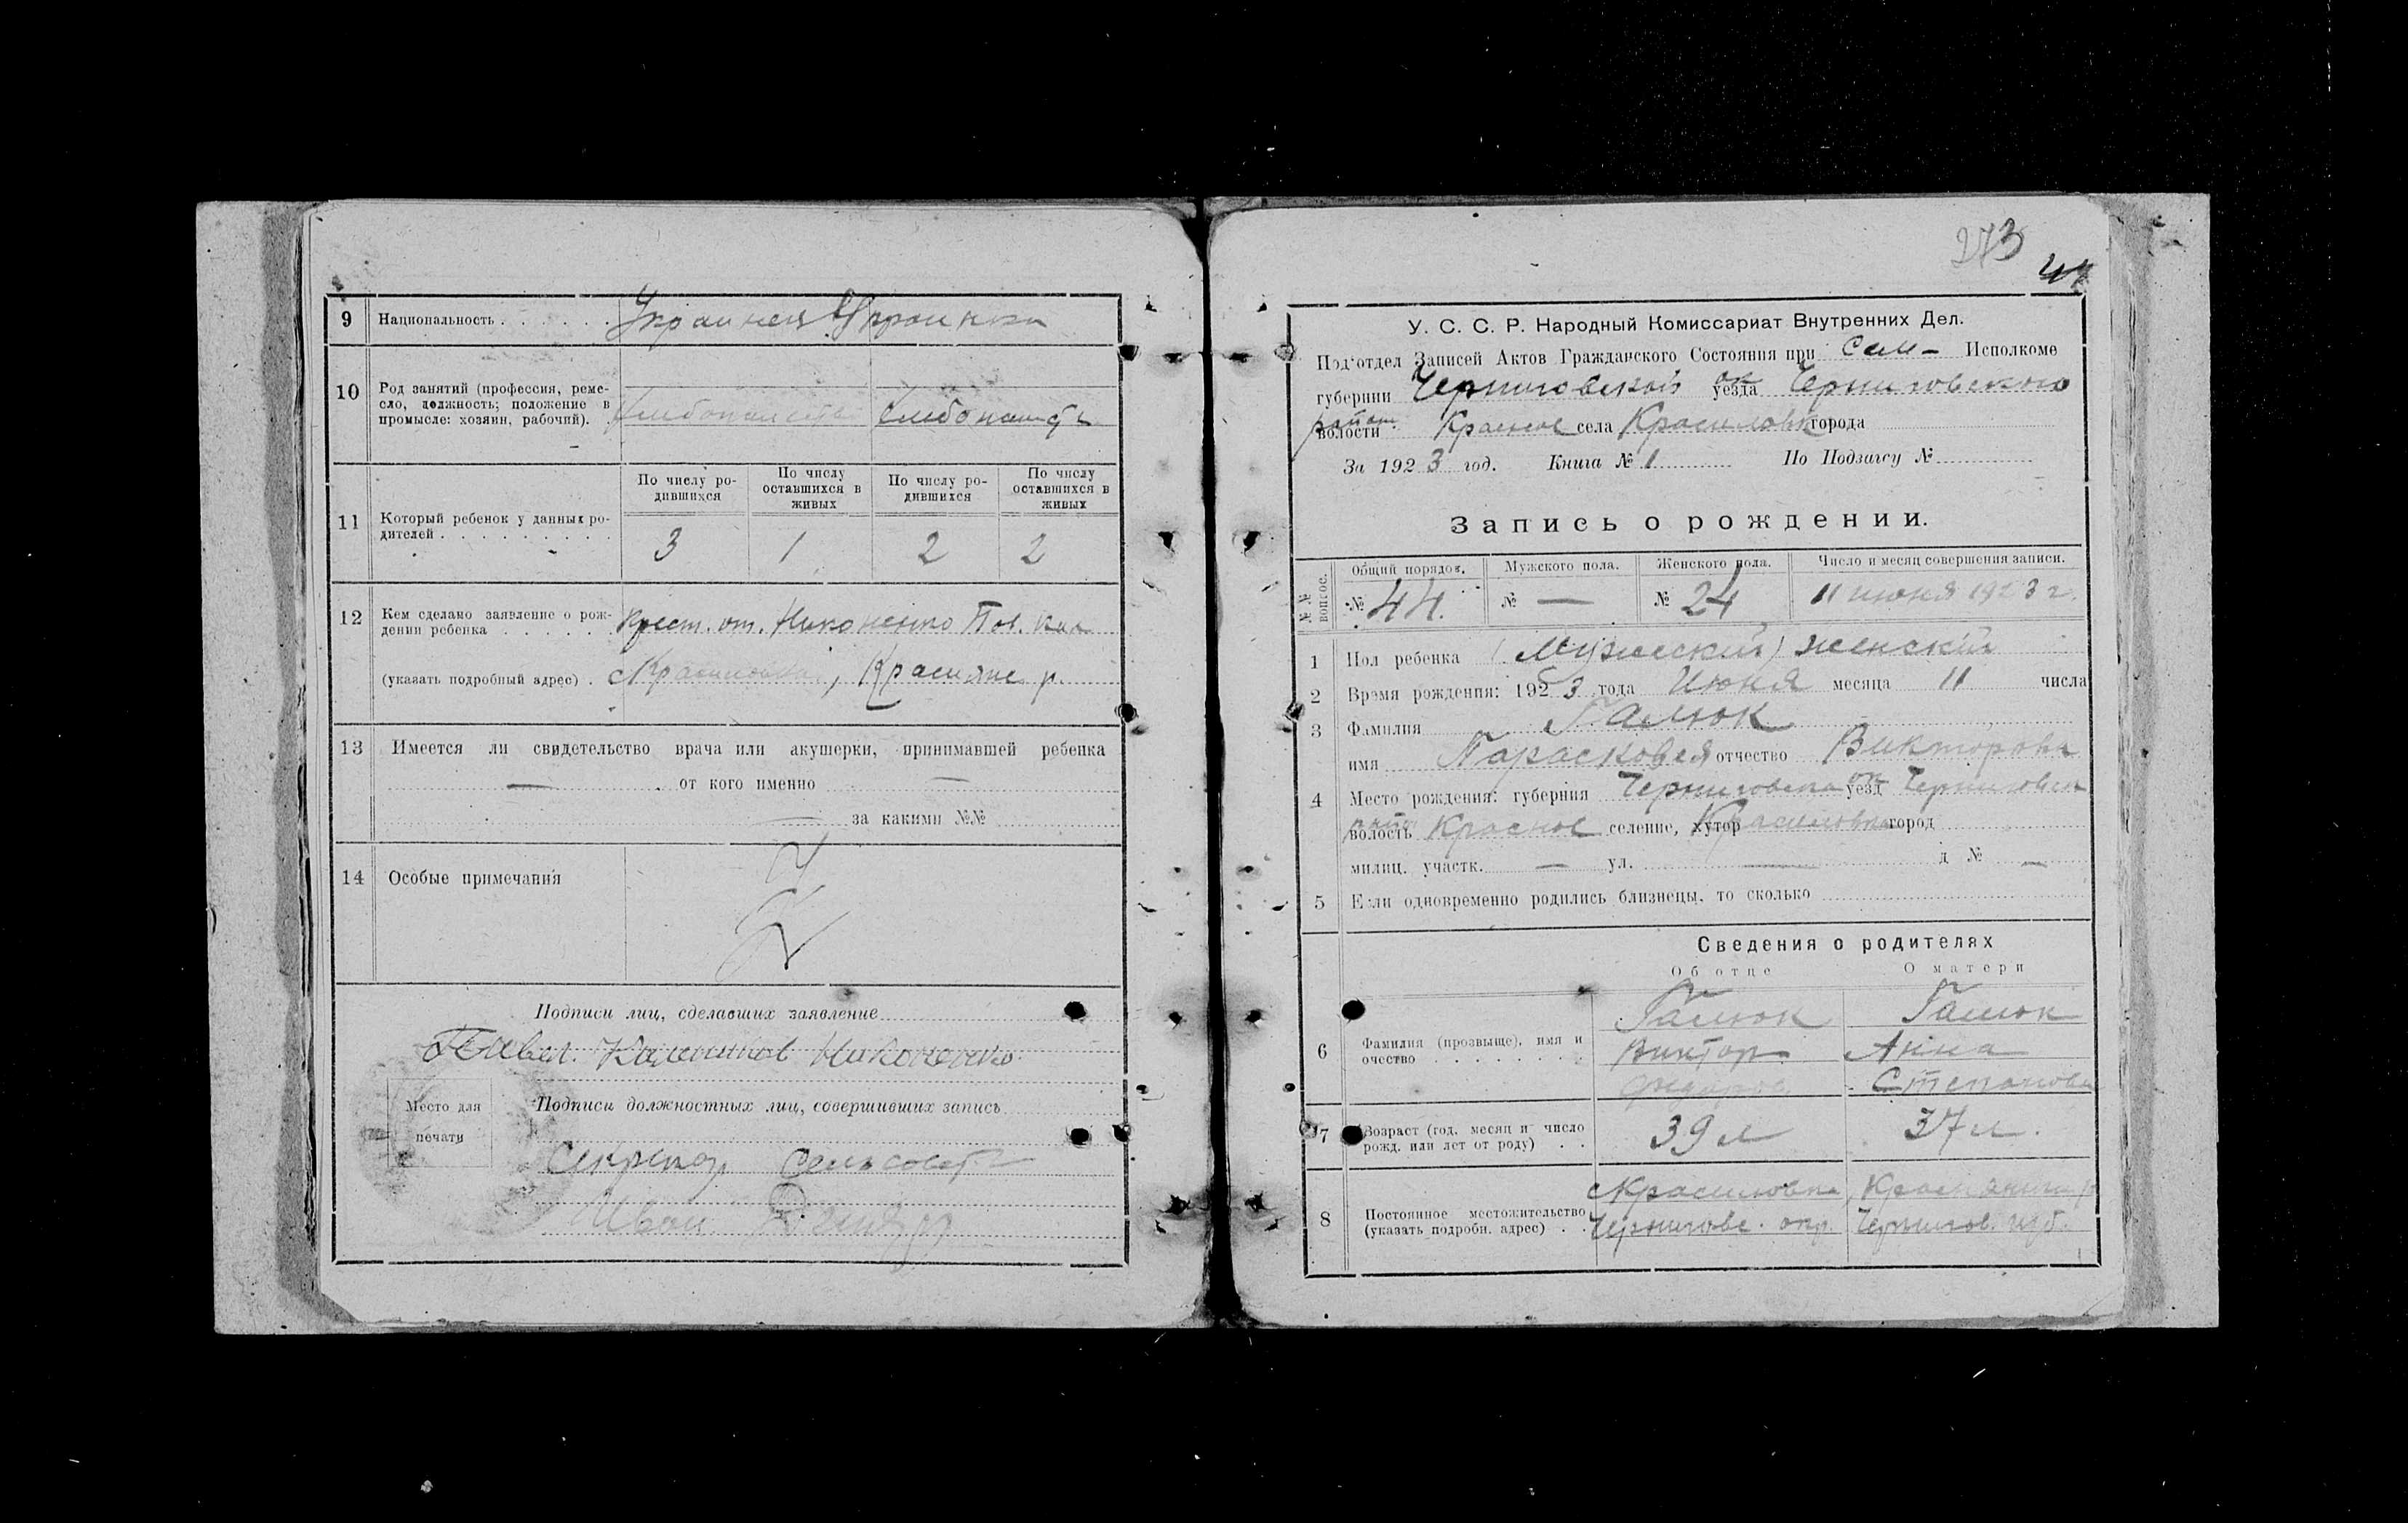 9 Национальность . . . . . . Украинец Украинка
10 Род занятий (профессия, реме-
сло, должность; положение в
промысле: хозяин, рабочий).
Хлебопашетв Хлебопашств
11 Который ребенок у данных ро-
дителей . . . . . . . . .
По числу ро-
дившихся
По числу
оставшихся в
живых
По числу ро-
дившихся
По числу
оставшихся в
живых
3 1 2 2
12 Кем сделано заявление о рож-
дении ребенка . . . . . Крест. от. Никоненко Пав. Кал
(указать подробный адрес) . с Красиловка, Краснянс. р.
13 Имеется ли свидетельство врача или акушерки, принимавшей ребенка
— от кого именно —
— за какими №№
14 Особые примечания
Подписи лиц, сделавших заявление
Павел Калеников Никоненко
Место для
печати
Подписи должностных лиц, совершивших запись
Секретар Сельсовета
Иван
273
44
У. С. С. Р. Народный Комиссариат Внутренних Дел.
Под'отдел Записей Актов Гражданского Состояния при Сель- Исполкоме
губернии Черниговской уезда ок Черниговского
волости район Красное села Красиловк города
За 1923 год. Книга № 1 По Подзагсу №
Запись о рождении.
№ № вопрос.
Общий порядов. Мужского пола. Женского пола. Число и месяц совершения записи.
№ 44. № — № 24 11 июня 1923 г.
1 Пол ребенка (Мужеский) женский
2 Время рождения: 1923 года Июня месяца 11 числа
3 Фамилия Галюк
имя Парасковея отчество Викторовн
4 Место рождения: губерния Черниговска уезд ок Черниговск
волость Красное селение, хутор Красиловка город
милиц. участк. — ул. — д № —
5 Если одновременно родились близнецы, то сколько
Сведения о родителях
Об отце О матери
6 Фамилия (прозвыще), имя и
очество . . . . . . . .
Галюк Галюк
Виктор Анна
Степановн
7 Возраст (год, месяц и число
рожд. или лет от роду) . .
39 л 37 л.
8 Постоянное местожительство
(указать подробн. адрес) . .
с Красиловка, Краснянск р
Черниговс. окр. Чернигов. губ.